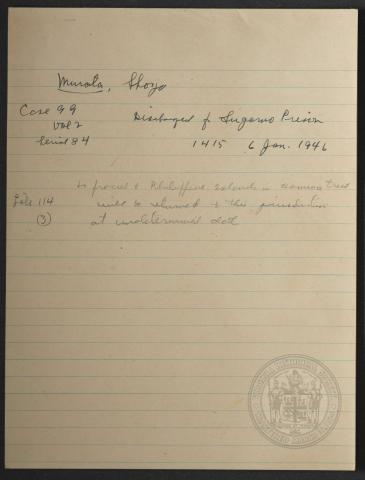 Murata, Shoyo
Case 99 Discharged fr Sugamo Prison
Vol 2
Serial 84 1415 6 Jan. 1946
to proceed to Philippine Islands in
File 114 will be returned to this jurisdiction
(3) at undetermined date